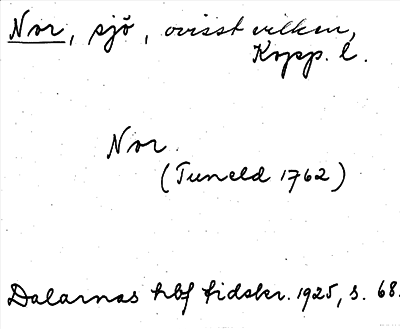 Nor, sjö, ovisst vilken,
Kopp. l.
Nor.
(Tuneld 1762)
Dalarnas hbf tidskr. 1925, s. 68.